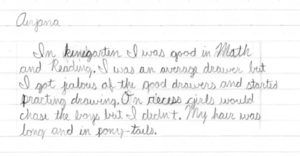 Anjana
In kinegarten I was good in Math
and Reading. I was an average drawer but
I got jealous of the good drawers and started
practing drawing. On riecess girls would
chase the boys but I didn't. My hair was
long and in pony-tails.